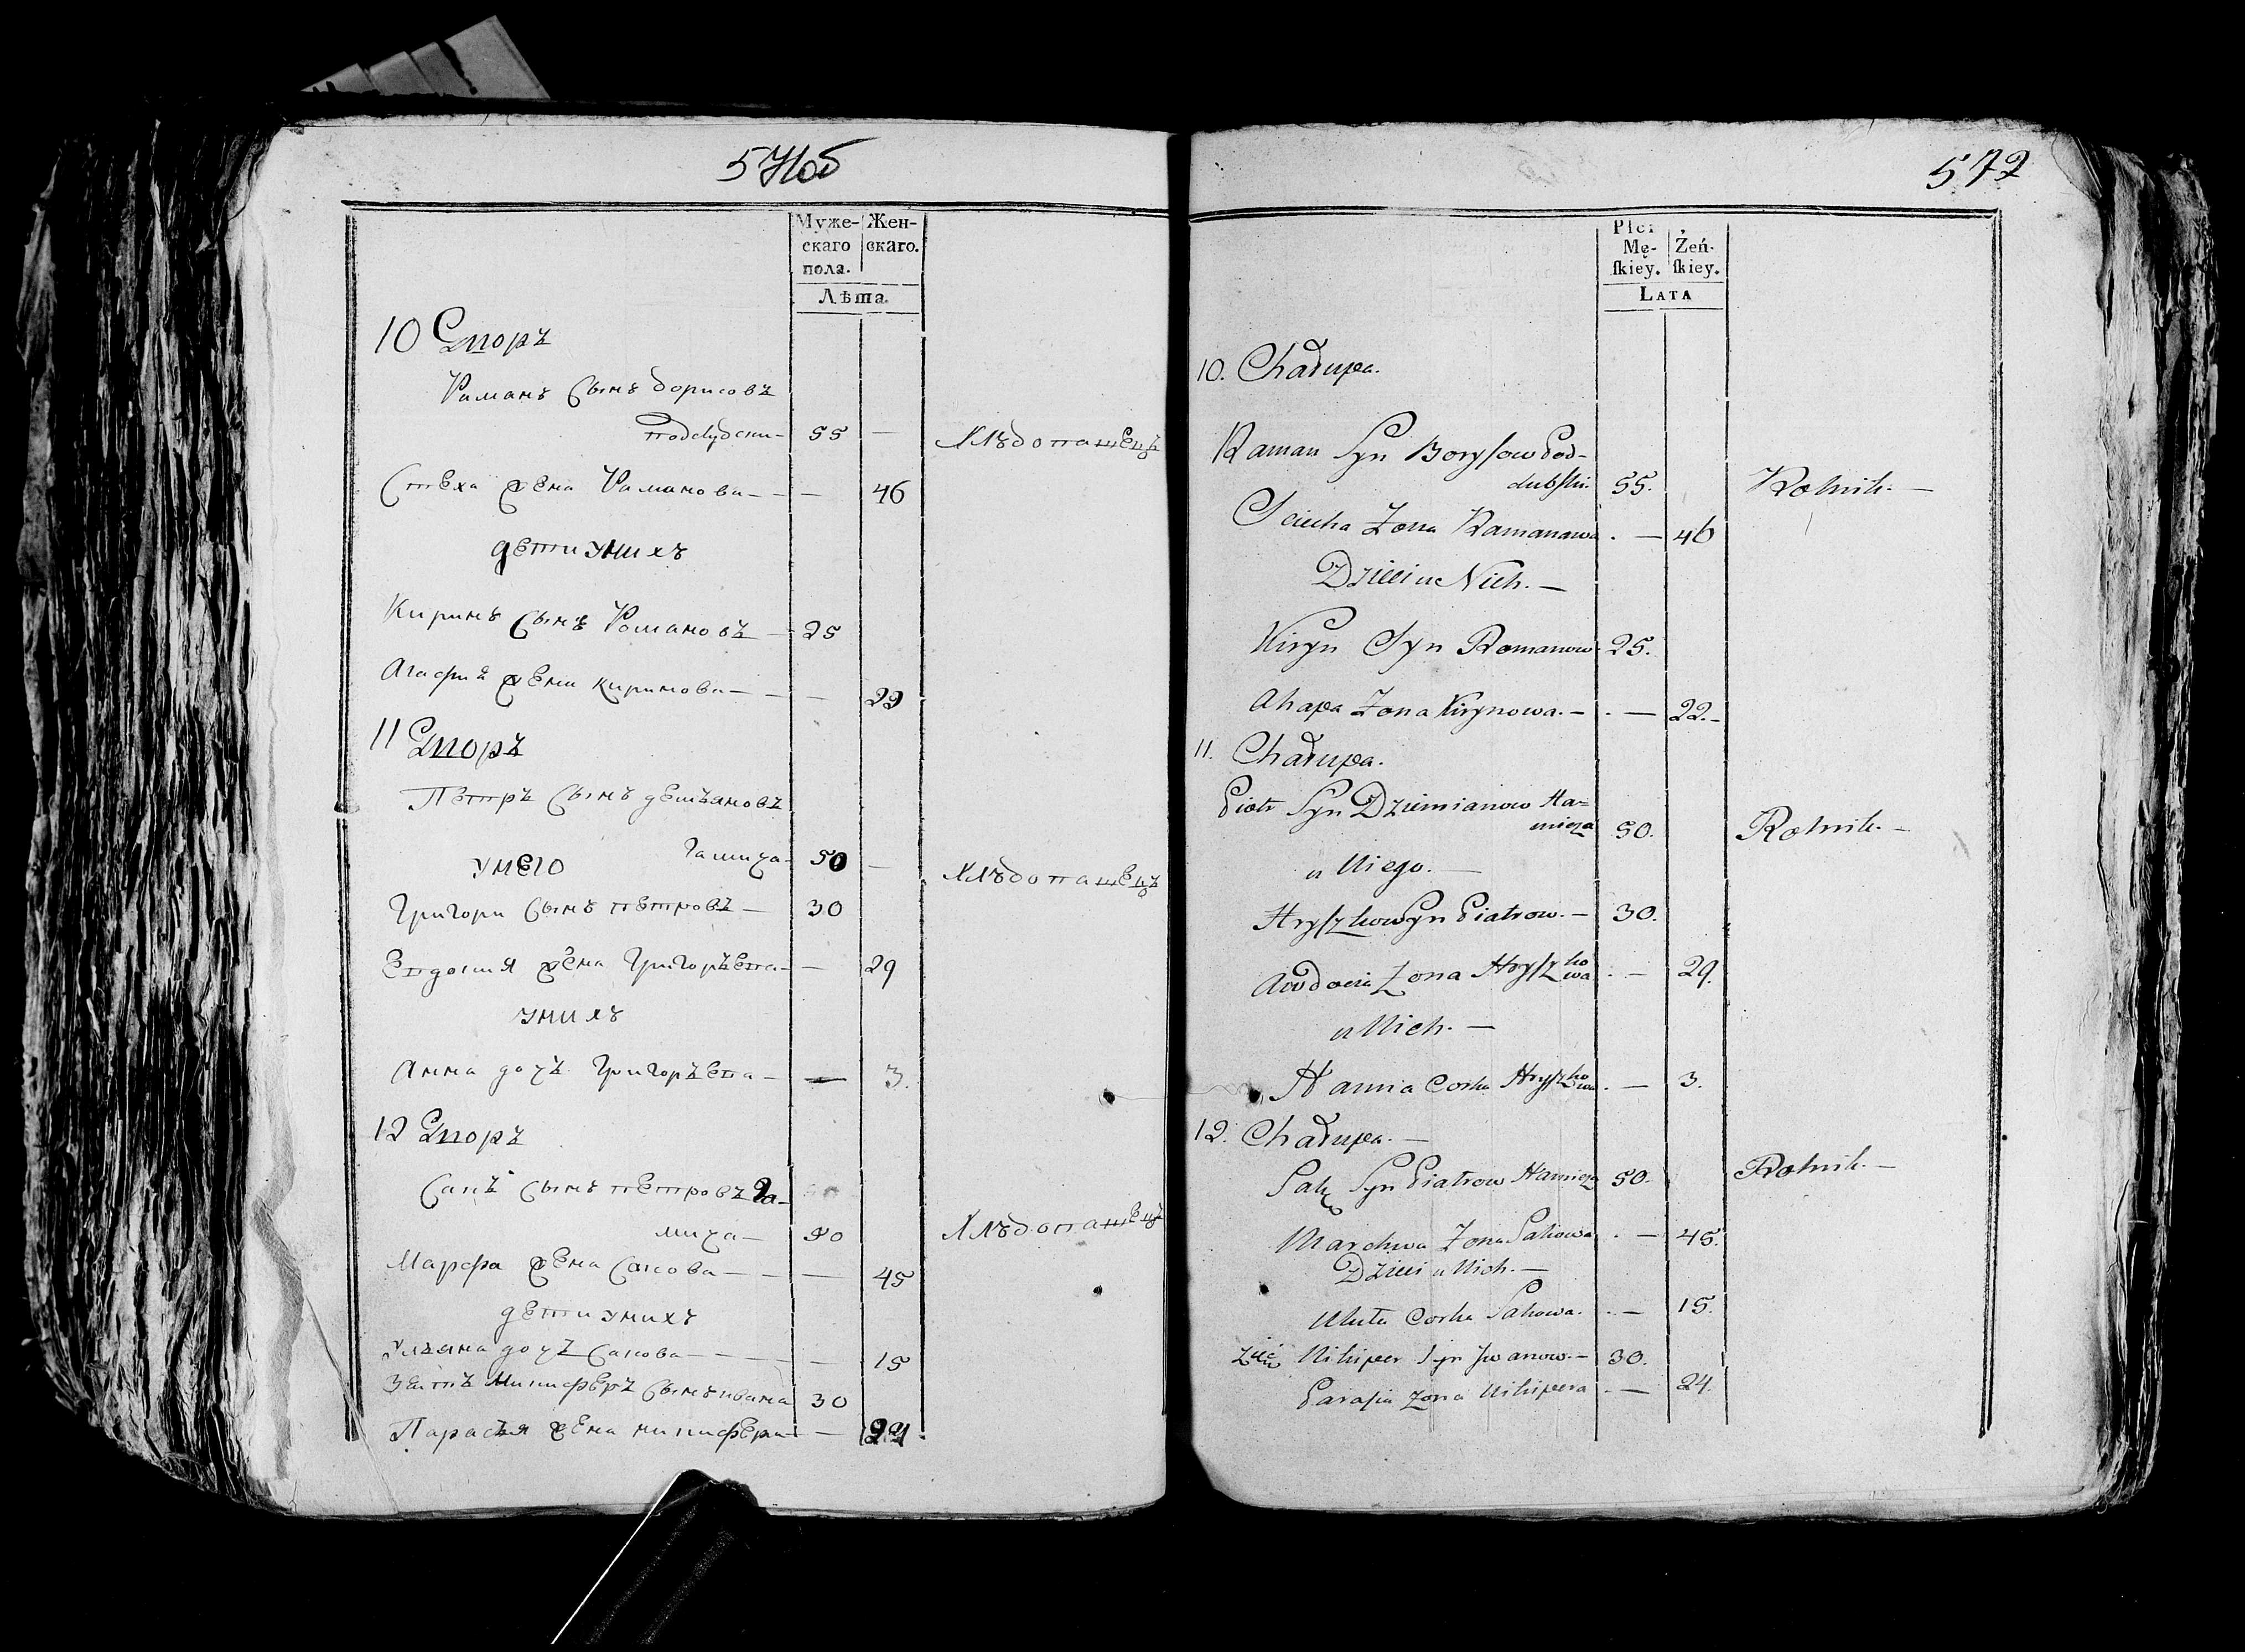 571об
Муже-
скаго
пола.
Жен-
скаго.
Лѣта.
10 Споръ
Романъ Сынъ борисовъ
подубски — 55 —
Хлѣбопашецъ
Стеха жена Романова — — 46
дети у нихъ
Киринъ Сынъ Романовъ — 25
Агафия жена Киринова — — 22
11 Споръ
Петръ Сынъ демьяновъ
Гамиза 50 —
Хлѣбопашецъ
у него
Григори Сынъ петровъ — 30
Евдокия жена Григорьева — — 29
у нихъ
Анна дочь Григорьева — — 3.
12 Споръ
Сакъ Сынъ петровъ Га-
миза — 50
Хлѣбопашецъ
Марфа жена Сакова — — 45
дети у нихъ
Ульяна дочь Сакова — — 15
Зеть Никиферъ Сынъ ивана 30
Парасья жена никифера — — 24
572
Płci
Mę-
ſkiey.
Żeń-
ſkiey.
LATA
10. Chałupa.
Raman Syn Boryſow Pod-
dubſki. 55. Rolnik. —
Sciecha Zona Ramanowa . — 46
Dzieci u Nich. —
Kiryn Syn Romanow 25.
Ahapa Zona Kirynowa. — . — 22. —
11. Chałupa.
Piotr Syn Dziemianow Ha-
mieza 50. Rolnik. —
u Niego. —
Hryſzko Syn Piatrow. — 30.
Awdocia Zona Hryſzkowa . — 29.
u Nich. —
Hanna Corka Hryſzkowa . — 3.
12. Chałupa. —
Sak Syn Piatrow Hamieza 50. Rolnik. —
Marchwa Zona Sakowa . — 45.
Dzieci u Nich. —
Uluta Corka Sakowa. . — 15.
Zięć Nikiper Syn Jwanow. — 30.
Paraſia Zona Nikipera . — 24.